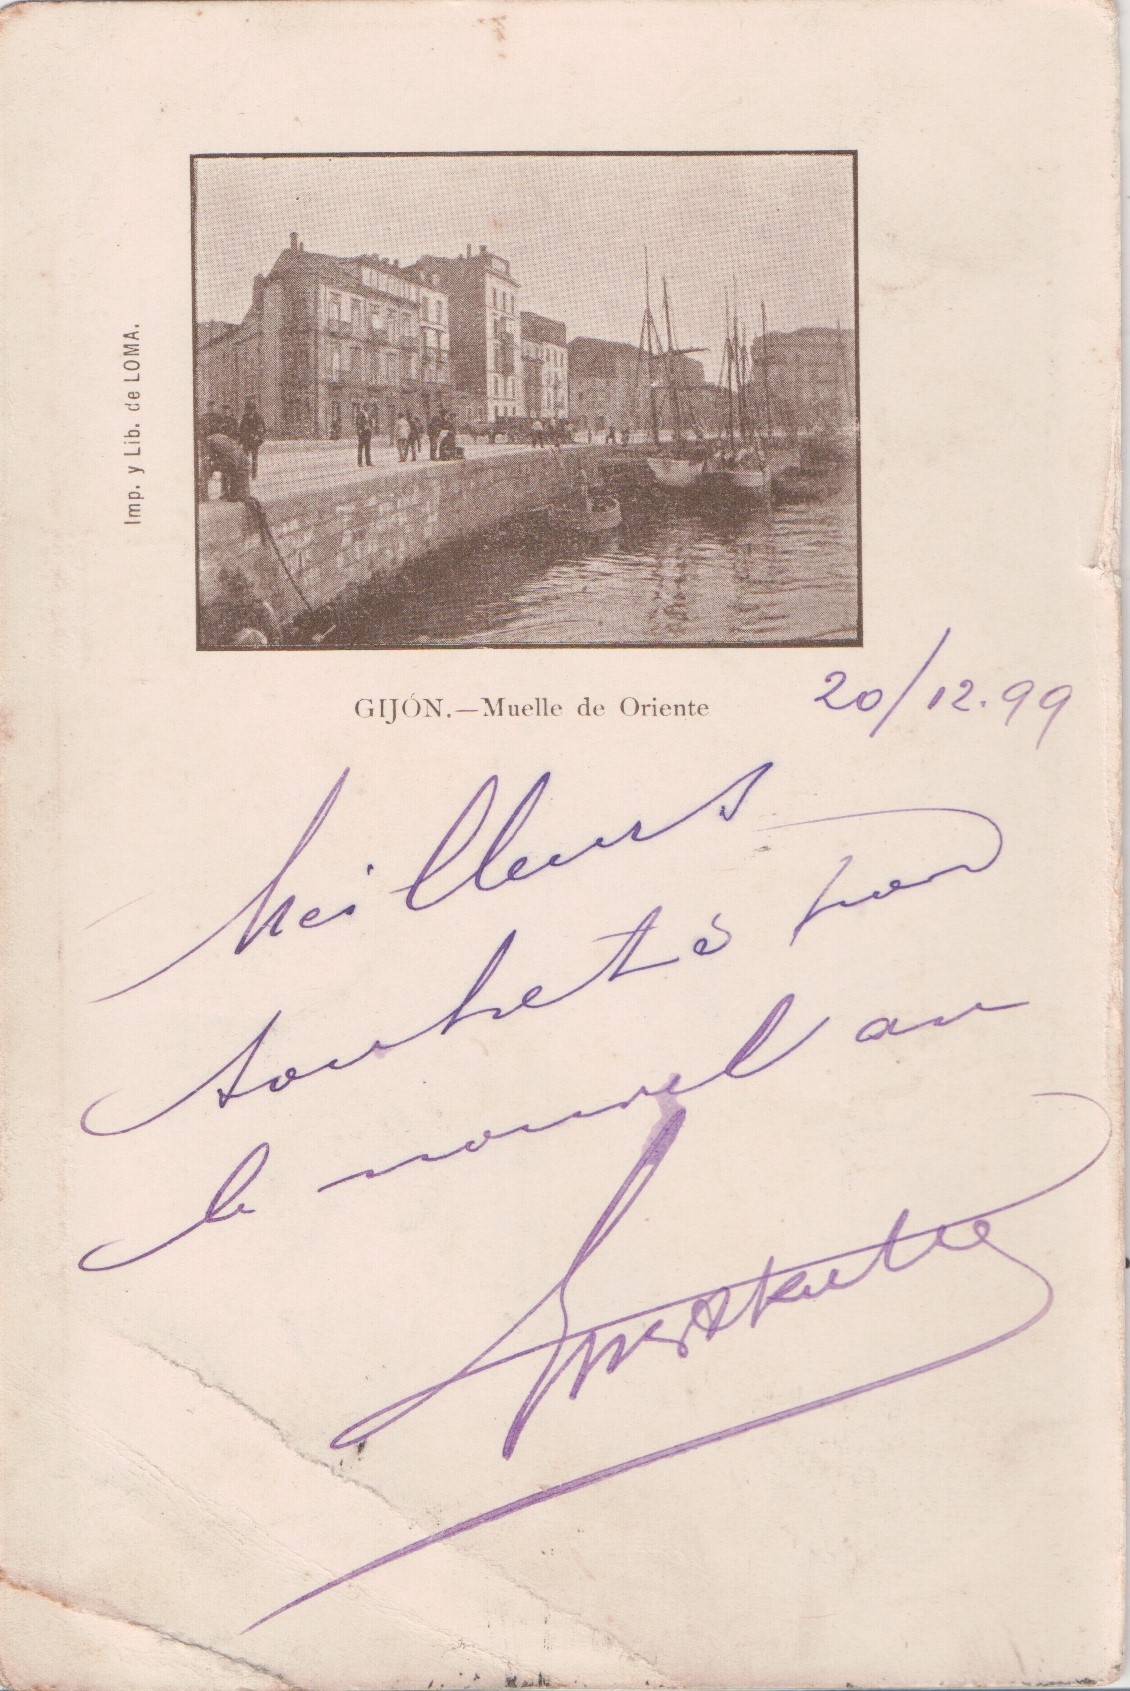 Imp. y Lib. de LOMA.
GIJÓN.—Muelle de Oriente
20/12.99
Meilleurs
souhaits pour
le nouvel an